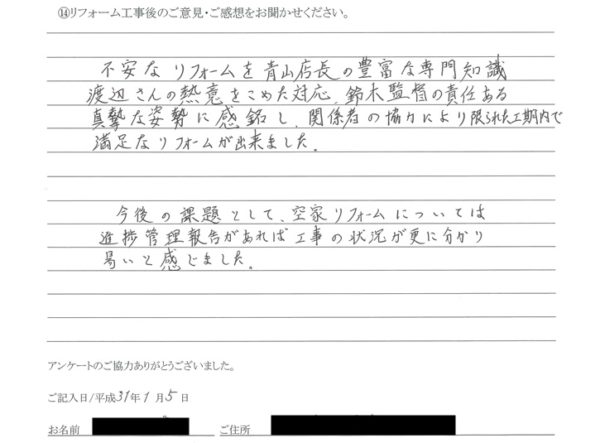 ⑭リフォーム工事後のご意見・ご感想をお聞かせください。
不安なリフォームを青山店長の豊富な専門知識
渡辺さんの熱意をこめた対応、鈴木監督の責任ある
真摯な姿勢に感銘し、関係者の協力により限られた工期内で
満足なリフォームが出来ました。
今後の課題として、空家リフォームについては
進捗管理報告があれば工事の状況が更に分かり
易いと感じました。
アンケートのご協力ありがとうございました。
ご記入日/平成31年1月5日
お名前 ご住所